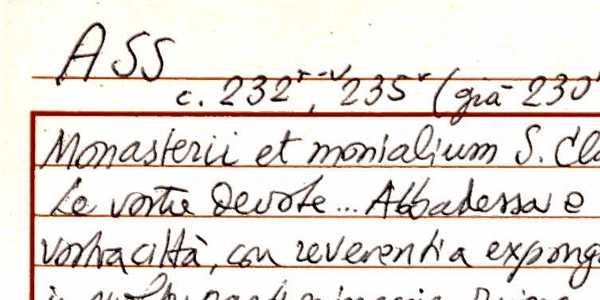 ASS
c. 232r-v, 235r (già 230
Monasterii et monialium S. Cla
Le vostre devote... Abbadessa e
vostra città, con reverentia expong